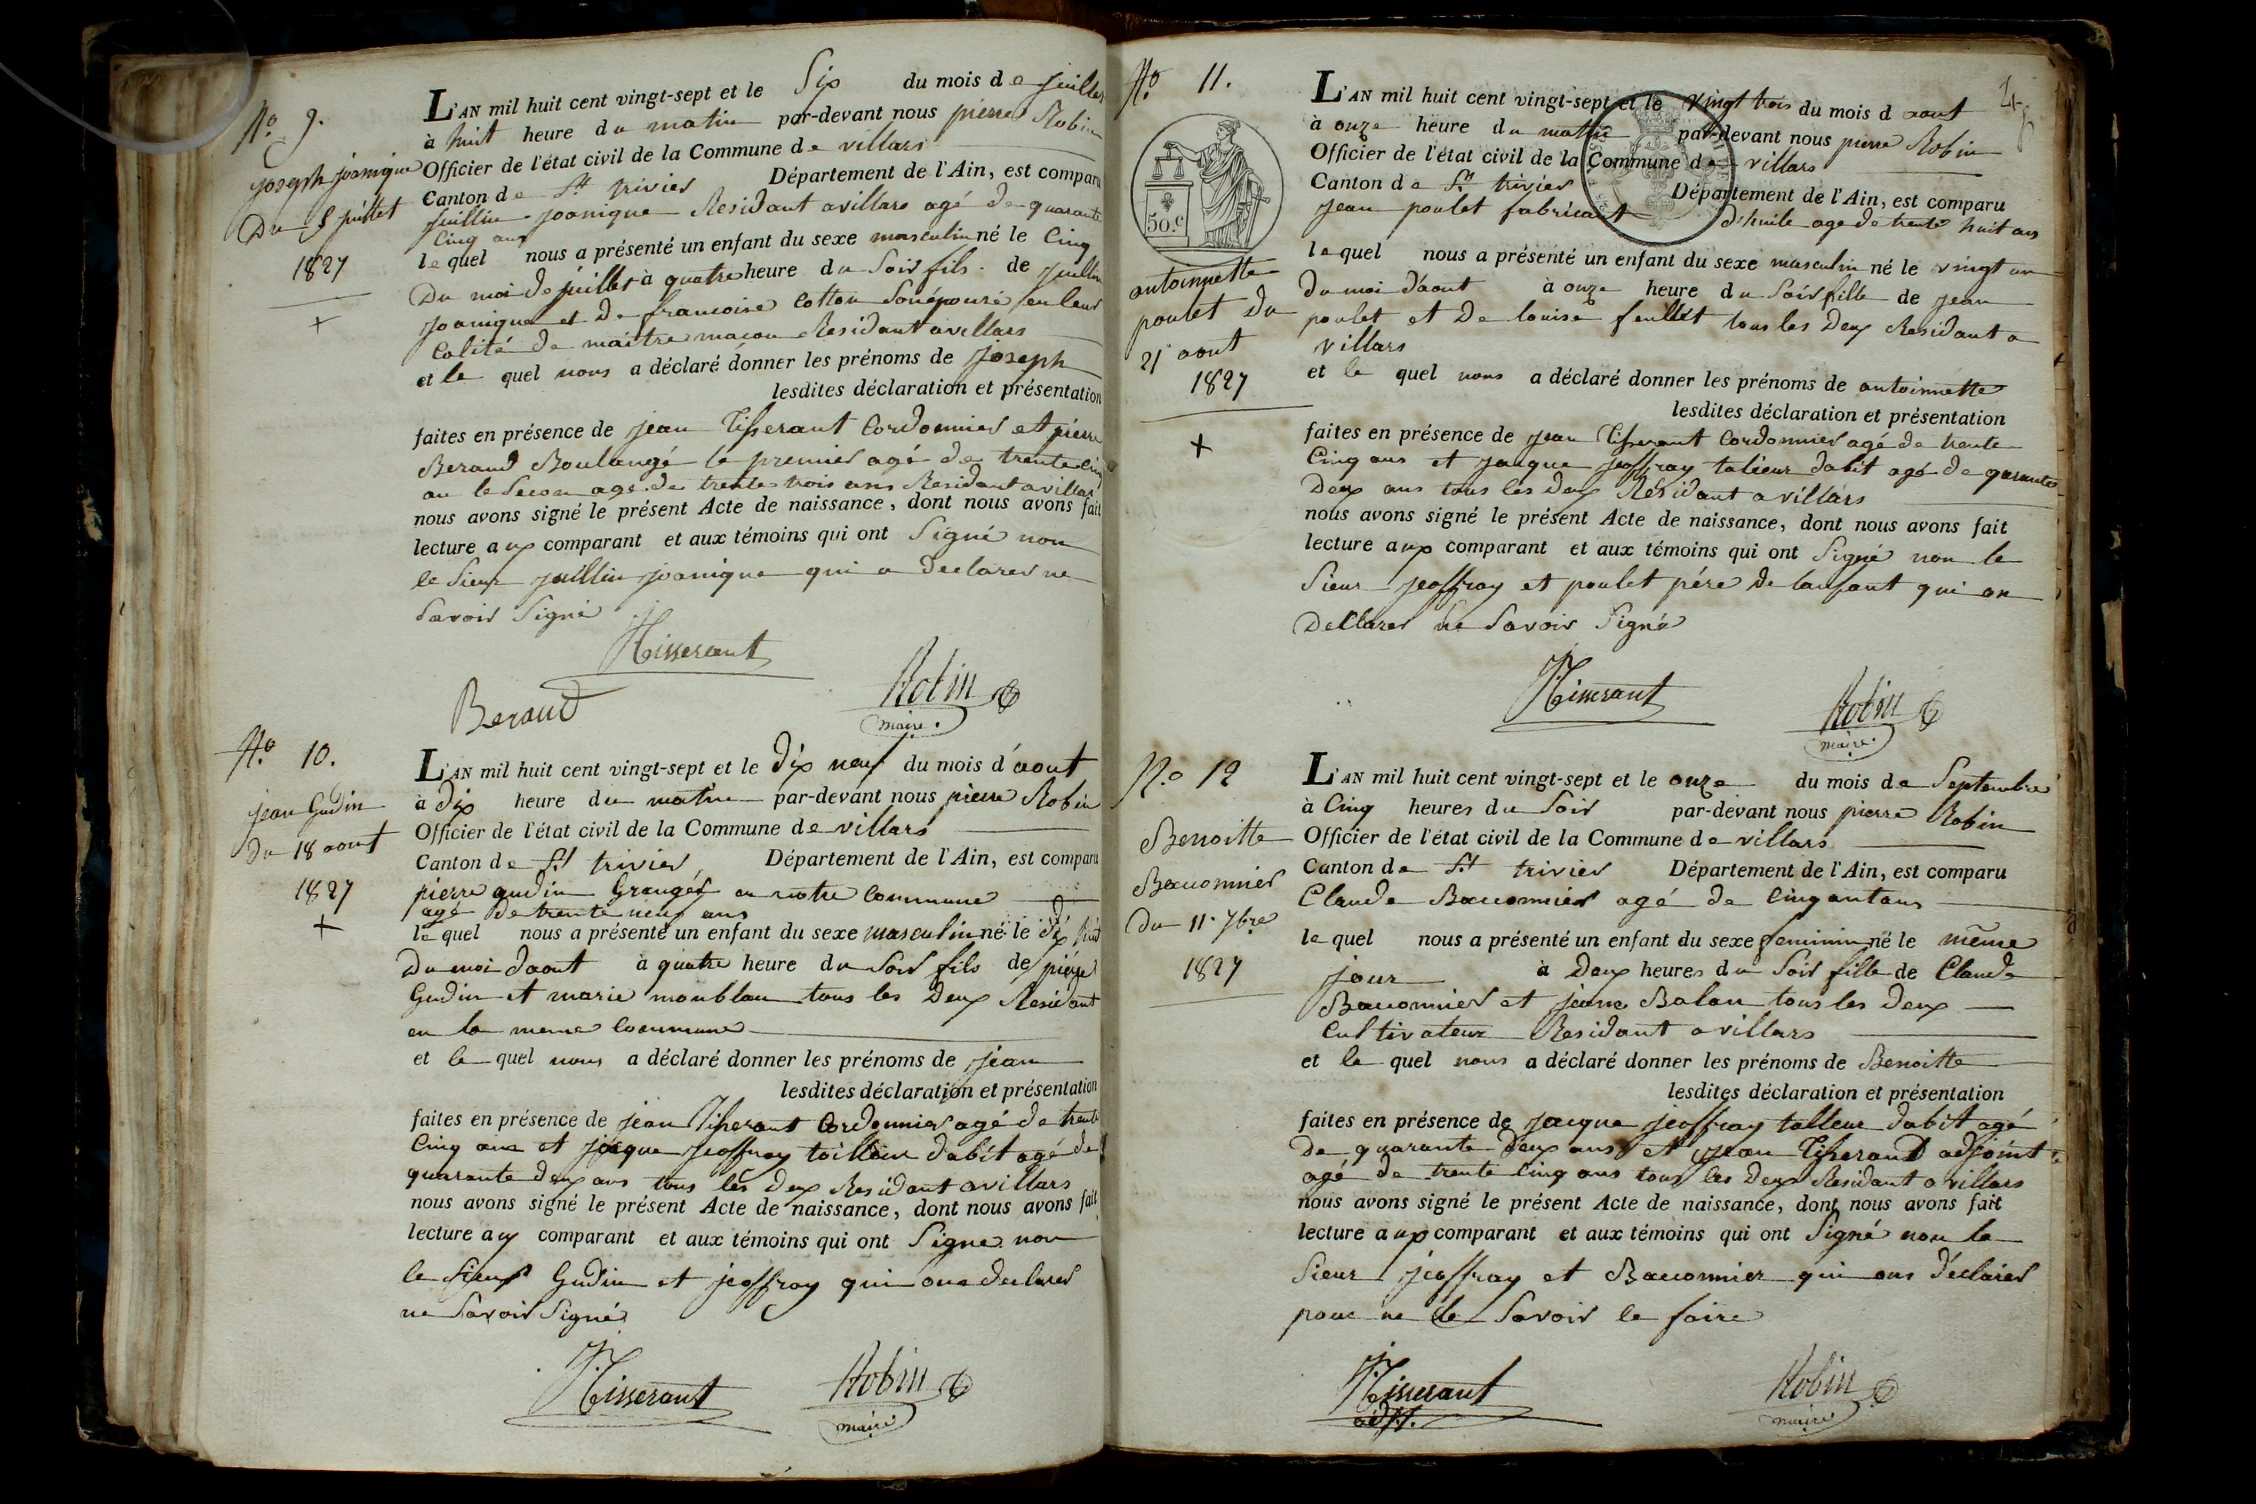 No. 9.
joseph joanique
Du 5 juillet
1827
+
L'AN mil huit cent vingt-sept et le Six du mois de juillet
à huit heure du matin par-devant nous pierre Robin
Officier de l'état civil de la Commune de villars
Canton de St trivier Département de l'Ain, est comparu
juillin joanique Residant a villars agé de quarante
Cinq ans
le quel nous a présenté un enfant du sexe masculin né le Cinq
Du moi de juillet à quatre heure du Soir fils de juillin
joanique et De francoise Cotton Son épouse en leur
Calité de maitre maçon Residant a villars
et le quel nous a déclaré donner les prénoms de joseph
lesdites déclaration et présentation
faites en présence de jean Tisserant Cordonnier et pierre
Beraud Boulangé le premier agé de trente Cinq
an le Secon age de trente trois ans Residant a villars
nous avons signé le présent Acte de naissance, dont nous avons fait
lecture aux comparant et aux témoins qui ont Signé non
le Sieur juillin joanique qui a declarer ne
Savoir Signé
Tisserant
Beraud
Robin
maire.
No. 10.
jean Gudin
Du 18 aout
1827
+
L'AN mil huit cent vingt-sept et le dix neuf du mois d'aout
à dix heure du matin par-devant nous pierre Robin
Officier de l'état civil de la Commune de villars
Canton de St trivier Département de l'Ain, est comparu
pierre gudin Granger en notre Commune
agé de trente neuf ans
le quel nous a présenté un enfant du sexe masculin né le dix huit
Du moi daout à quatre heure du Soir fils de pierre
Gudin et marie monblan tous les Deux Residant
en la meme Commune
et le quel nous a déclaré donner les prénoms de jean
lesdites déclaration et présentation
faites en présence de jean Tisserant Cordonnier agé de trente
Cinq ans et jacque jeoffray tailleur dabit agé de
quarante deux ans tous les deux Residant a villars
nous avons signé le présent Acte de naissance, dont nous avons fait
lecture aux comparant et aux témoins qui ont Signe non
le Sieur Gudin et jeoffray qui on declarer
ne Savoir Signé
Tisserant
Robin
maire
No. 11.
50.c
antoinnette
poulet Du
21 aout
1827
+
L'AN mil huit cent vingt-sept et le vingt trois du mois d aout
à onze heure du matin par-devant nous pierre Robin
Officier de l'état civil de la Commune de villars
Canton de St trivier Département de l'Ain, est comparu
jean poulet fabricant d'huile age de trente huit ans
le quel nous a présenté un enfant du sexe masculin né le vingt un
du moi daout à onze heure du Soir fille de jean
poulet et De louise feuillet tous les Deux Residant a
villars
et le quel nous a déclaré donner les prénoms de antoinnette
lesdites déclaration et présentation
faites en présence de jean Tisserant Cordonnier agé de trente
Cinq ans et jacque jeoffray talieur dabit agé de quarante
Deux ans tous les deux Résidant a villars
nous avons signé le présent Acte de naissance, dont nous avons fait
lecture aux comparant et aux témoins qui ont Signé non le
Sieur jeoffray et poulet pére de lanfant qui on
Declarer ne Savoir Signé
Tisserant
Robin
maire.
No. 12
Benoitte
Bauonnier
Du 11. 7bre
1827
L'AN mil huit cent vingt-sept et le onze du mois de Septembre
à Cinq heures du Soir par-devant nous pierre Robin
Officier de l'état civil de la Commune de villars
Canton de St trivier Département de l'Ain, est comparu
Claude Bauonnier agé de Cinqantans
le quel nous a présenté un enfant du sexe feminin né le même
jour à Deux heures du Soir fille de Claude
Bauonnier et jeanne Balan tous les deux
Cultivateur Residant a villars
et le quel nous a déclaré donner les prénoms de Benoitte
lesdites déclaration et présentation
faites en présence de jacque jeoffray talleur dabit agé
De quarante Deux ans et jean Tisserant adjoint
agé de trente Cinq ans tous les Deux Residant a villars
nous avons signé le présent Acte de naissance, dont nous avons fait
lecture aux comparant et aux témoins qui ont Signé non le
Sieur jeoffray et Bauonnier qui ons déclarer
pour ne le Savoir le faire
Tisserant
adjt.
Robin
maire